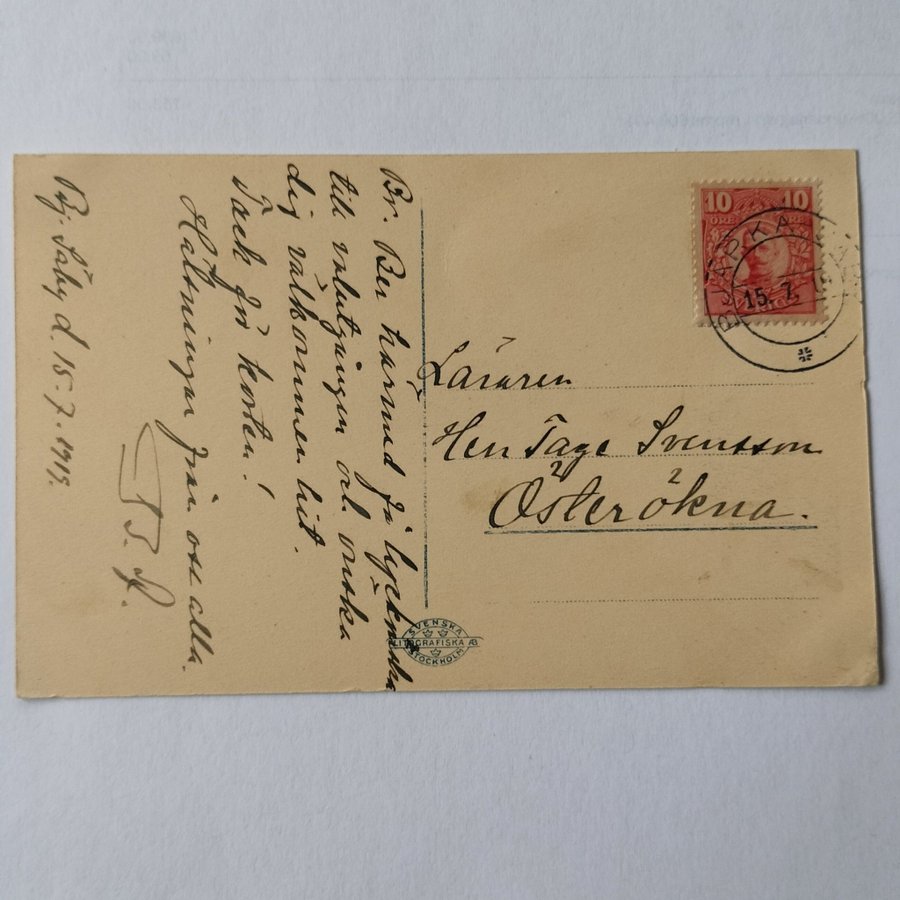 Bj. Säby d. 15.7.1919.
Br. Ber härmed få lyckönska
till valutgången och önska
dig välkommen hit.
Tack för korten!
Hälsningar från oss alla
10 10
ÖRE ÖRE
15. 7.
Läraren
Herr Tage Svensson
Österökna.
SVENSKA
LITOGRAFISKA AB
STOCKHOLM